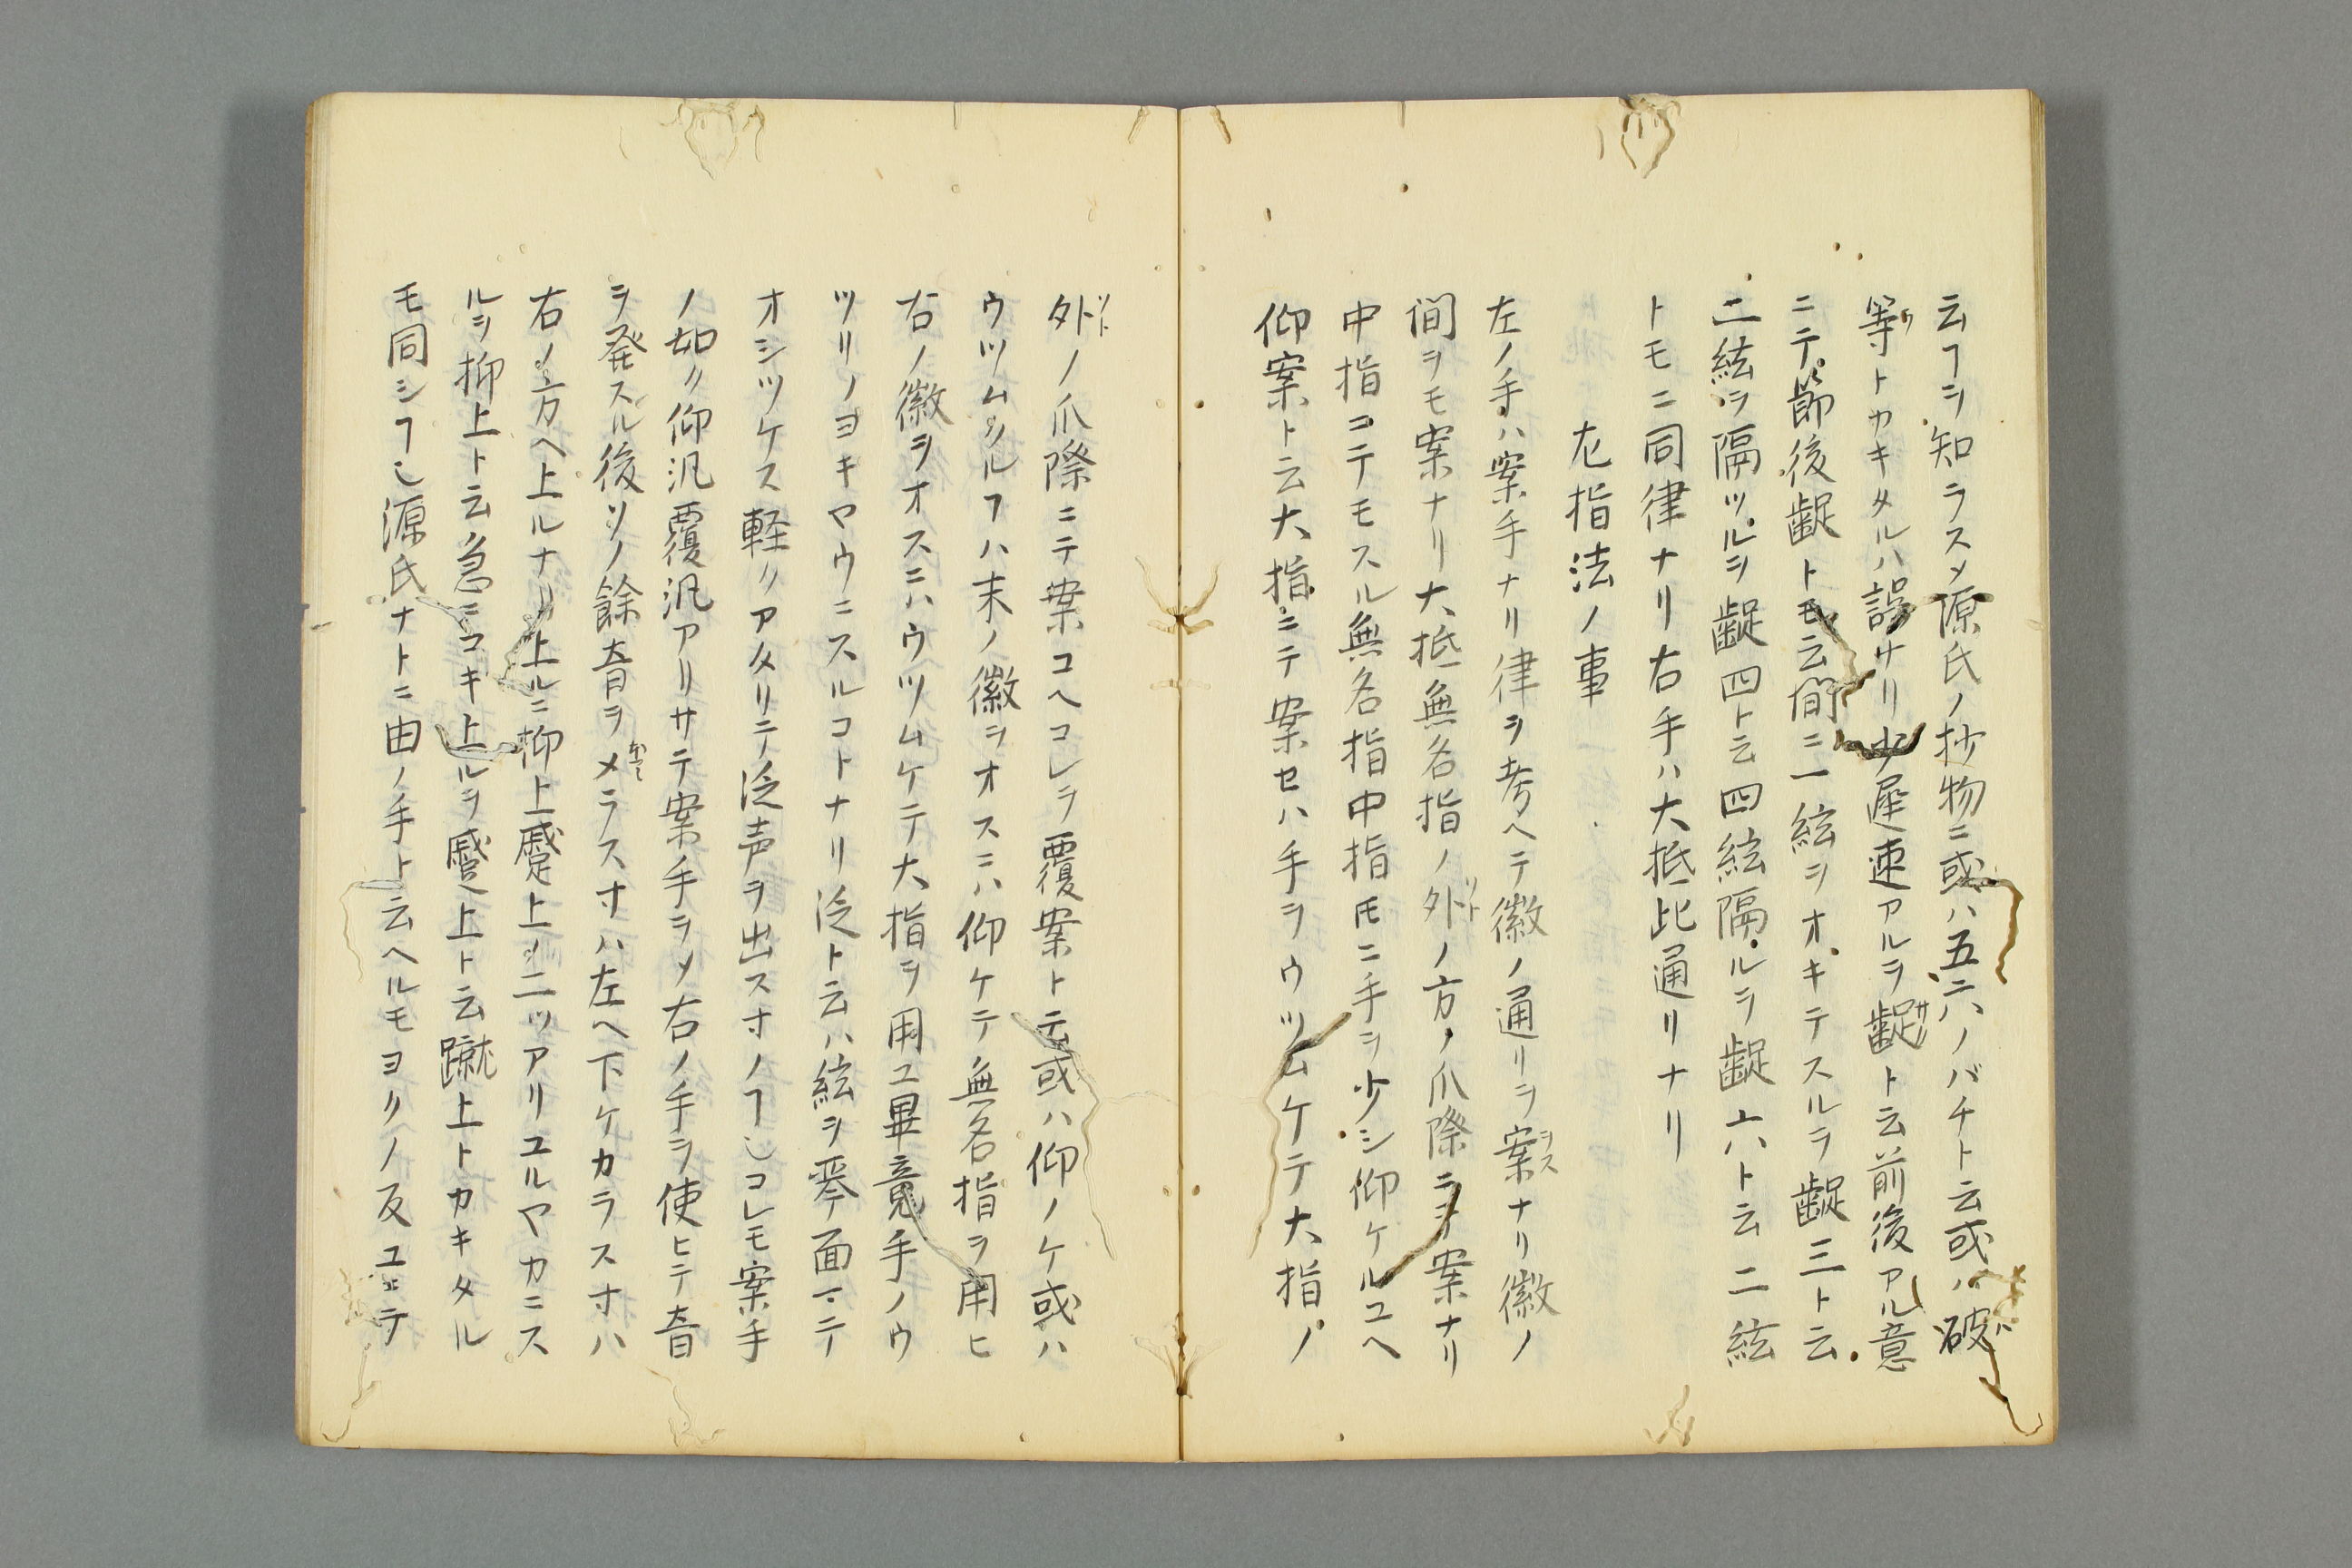 云ヿヲ知ラスメ源氏ノ抄物ニ或ハ五六ノバチト云或ハ破
等トカキタルハ誤ナリ少遅速アルヲ齪ト云前後アル意
ニテ節後齪トモ云間ニ一絃ヲオキテスルヲ齪三ト云
二絃ヲ隔ツルヲ齪四ト云四絃隔ルヲ齪六ト云二絃
トモニ同律ナリ右手ハ大抵此通リナリ
左指法ノ事
左ノ手ハ案手ナリ律ヲ考ヘテ徽ノ通リヲ案ナリ徽ノ
間ヲモ案ナリ大抵無名指ノ外ノ方ノ爪際ニテ案ナリ
中指ニテモスル無名指中指ﾓニ手ヲ少シ仰ケルユヘ
仰案ト云大指ニテ案セハ手ヲウツムケテ大指ノ
外ノ爪際ニテ案ユヘコレヲ覆案ト云或ハ仰ノケ或ハ
ウツムクルヿハ末ノ徽ヲオスニハ仰ケテ無名指ヲ用ヒ
右ノ徽ヲオスニハウツムケテ大指ヲ用ユ畢竟手ノウ
ツリノヨキヤウニスルコトナリ泛ト云ハ絃ヲ琴面マテ
オシツケス軽クアタリテ泛声ヲ出スオノヿ也コレモ案手
ノ如ク仰汎覆汎アリサテ案手ヲメ右ノ手ヲ使ヒテ音
ヲ発スル後ソノ餘音ヲメラスオハ左ヘ下ケカラスオハ
右ノ方ヘ上ルナリ上ルニ抑上蹙上ノ二ツアリユルヤカニス
ルヲ抑上ト云急ニコキ上ルヲ蹙上ト云蹴上トカキタル
モ同シヿ也源氏ナトニ由ノ手ト云ヘルモヨクノ反ユニテ